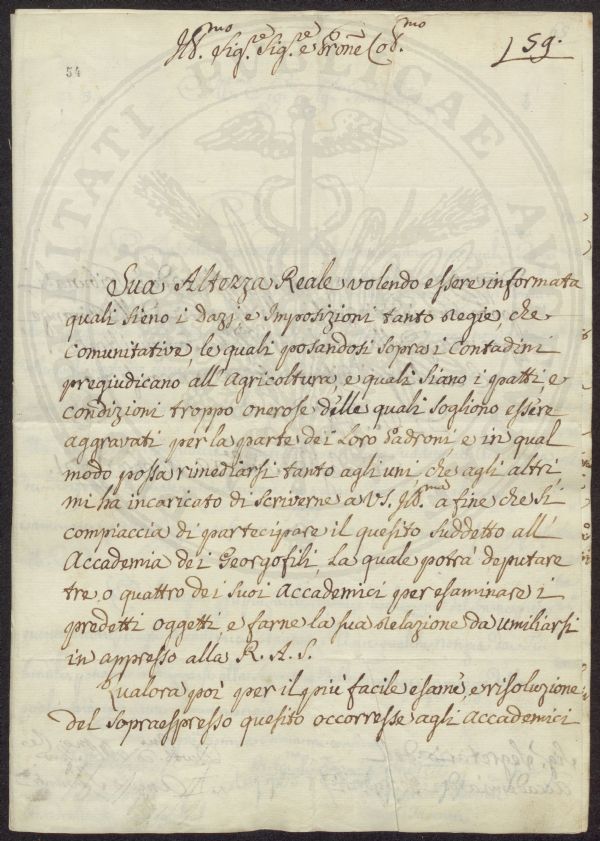 Ill.mo Sig.re Sig.re e Prone Col.mo
59.
54
Sua Altezza Reale volendo essere informata
quali sieno i Dazj e Imposizioni tanto Regie, che
Comunitative, le quali posandosi sopra i Contadini
pregiudicano all'Agricoltura, e quali siano i patti, e
condizioni troppo onerose delle quali sogliono essere
aggravati per la parte dei Loro Padroni e in qual
modo possa rimediarsi tanto agli uni, che agli altri
mi ha incaricato di scriverne a V.S. Ill.ma a fine che si
compiaccia di partecipare il quesito suddetto all'
Accademia dei Georgofili, La quale potrà deputare
tre o quattro dei suoi Accademici per esaminare i
predetti oggetti, e farne la sua Relazione da umiliarsi
in appresso alla R. A. S.
Qualora poi per il più facile esame, e risoluzione
del sopraespresso quesito occorresse agli Accademici